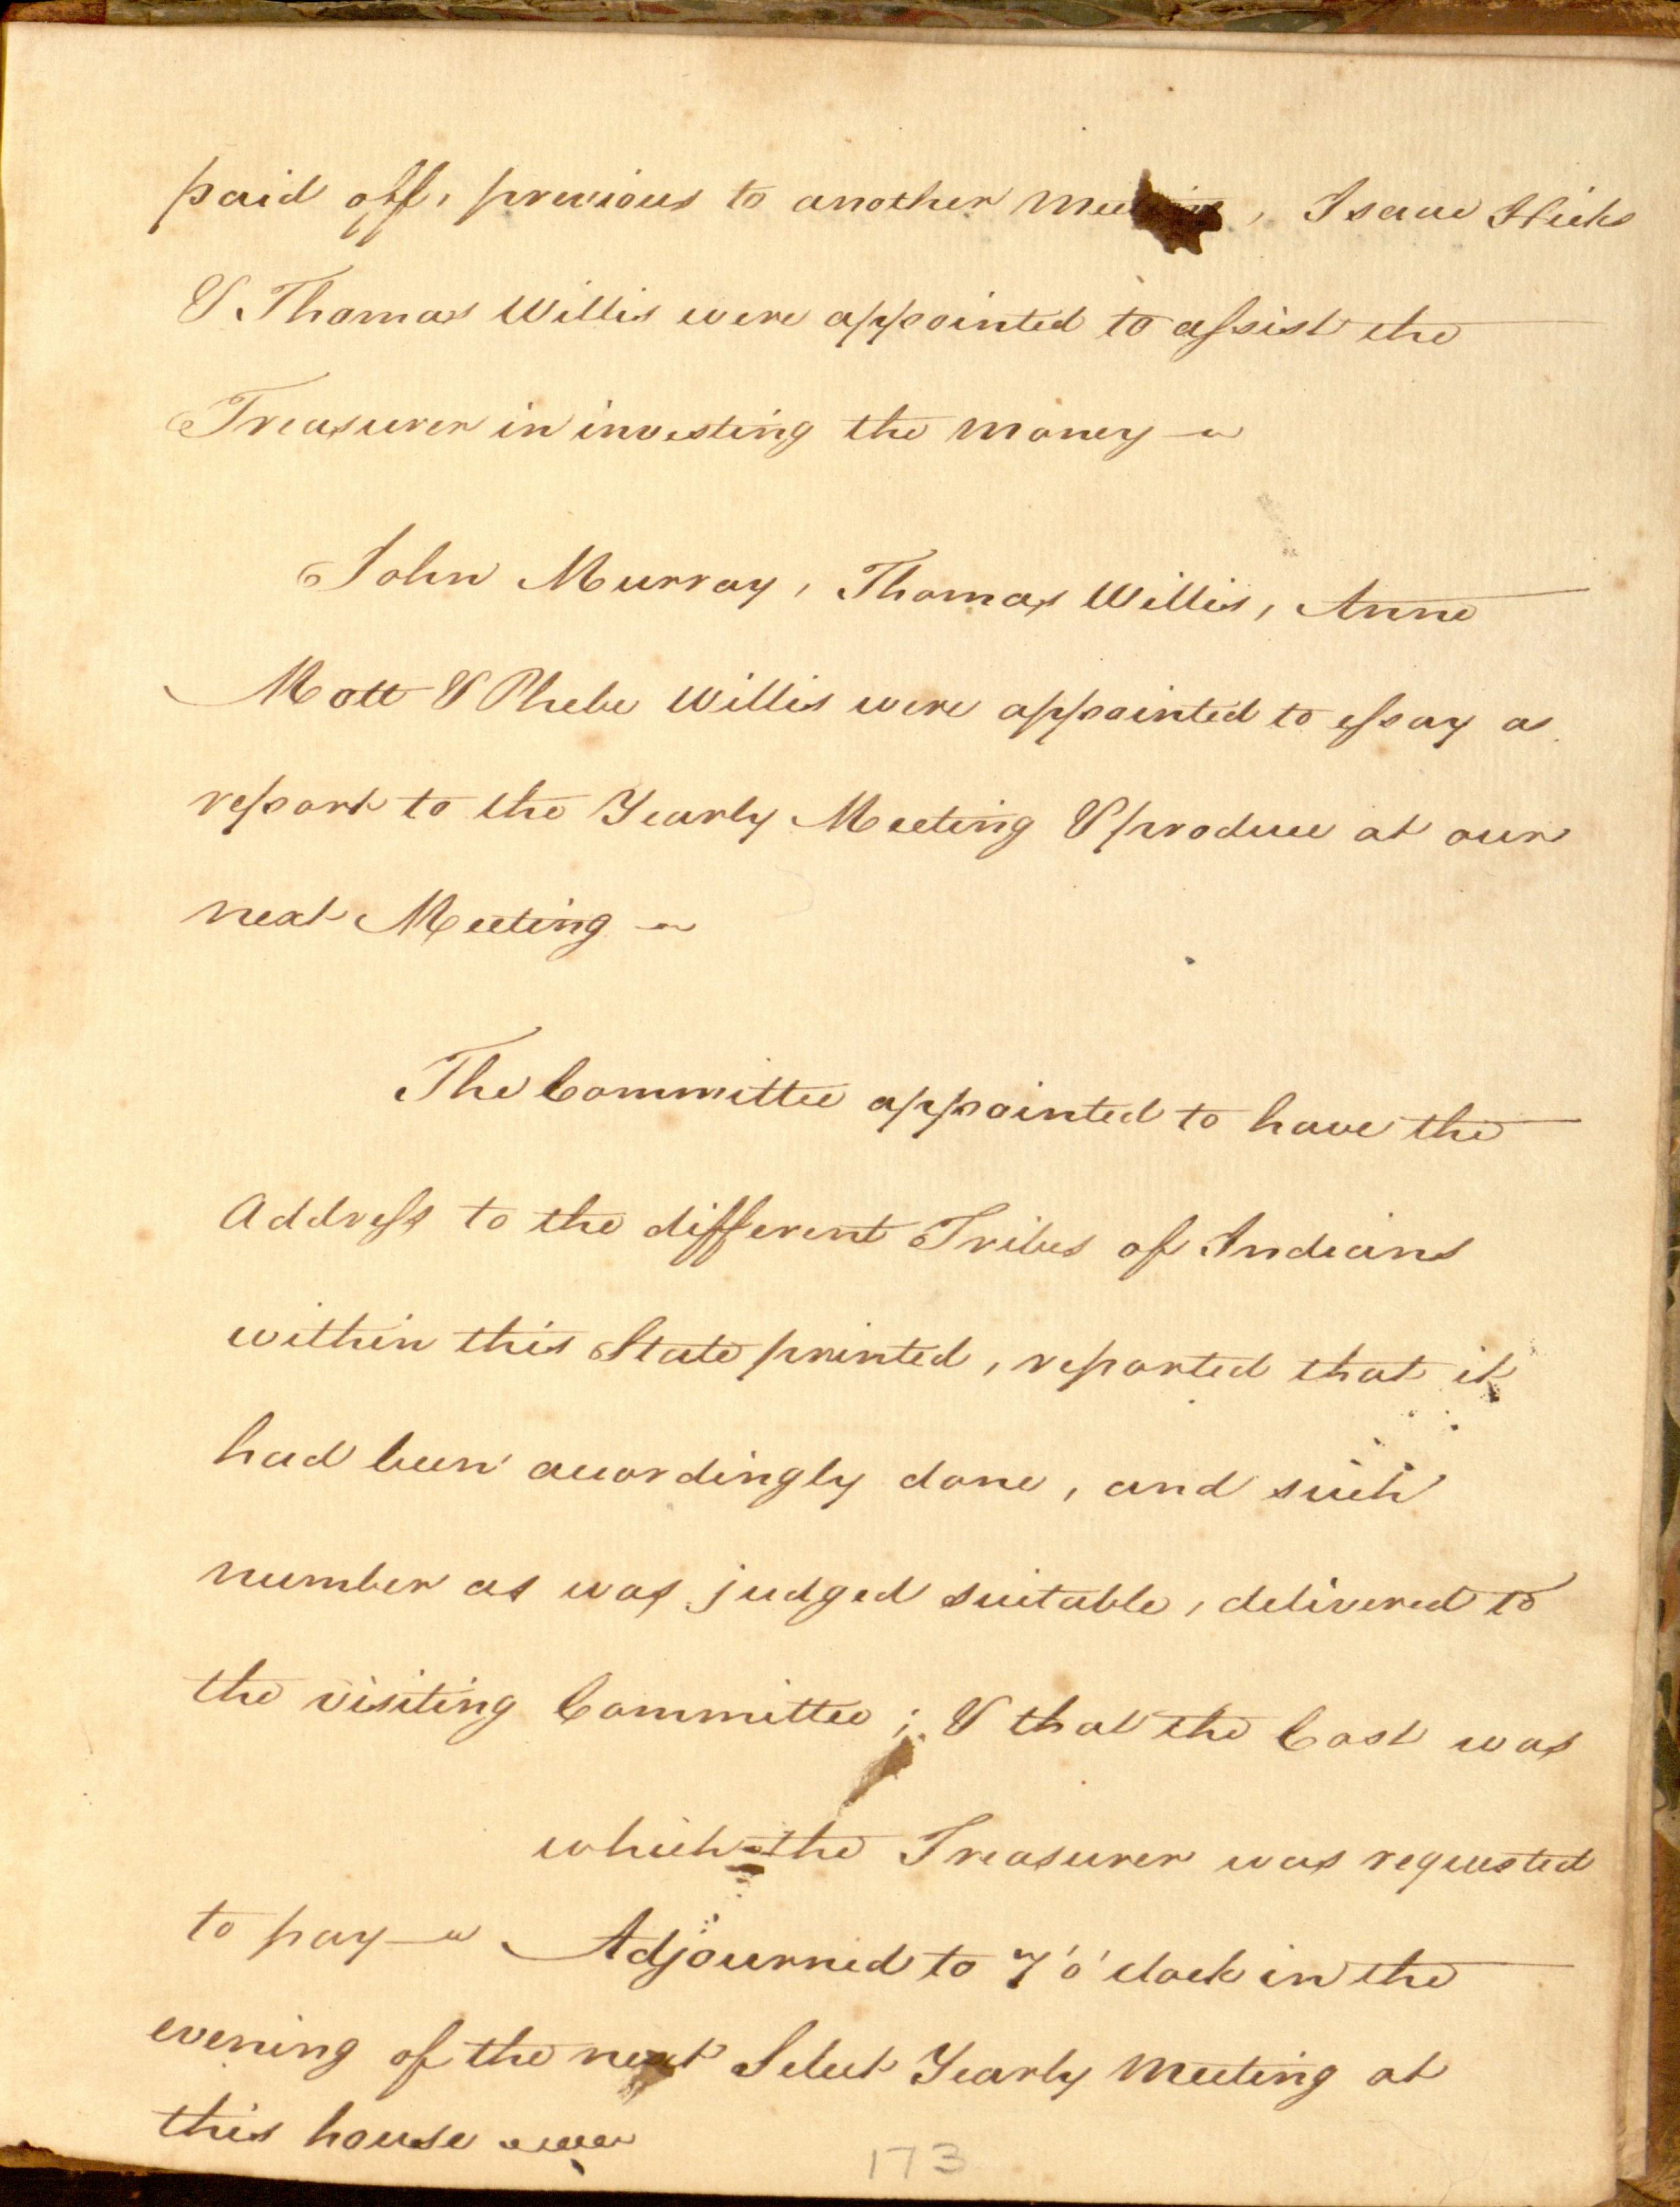 paid off, previous to another Meeting, Isaac Hicks
& Thomas Willis were appointed to assist the
Treasurer in investing the money —
John Murray, Thomas Willis, Anne
Mott & Phebe Willis were appointed to essay a
report to the Yearly Meeting & produce at our
next Meeting —
The Committee appointed to have the
Address to the different Tribes of Indians
within this State printed, reported that it
had been accordingly done, and such
number as was judged suitable, delivered to
the visiting Committee; & that the Cost was
which the Treasurer was requested
to pay — Adjourned to 7 o'clock in the
evening of the next Select Yearly Meeting at
this house
173